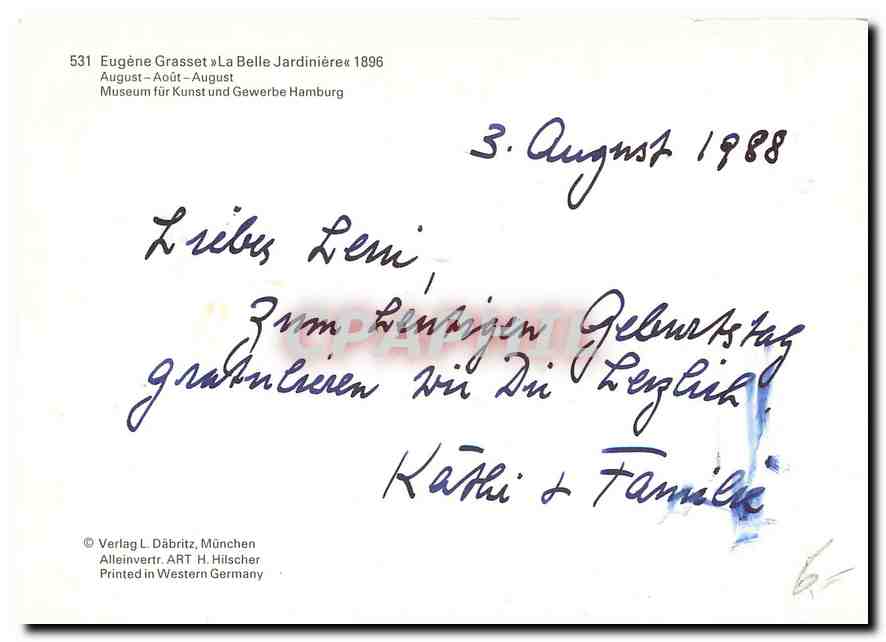 531 Eugène Grasset »La Belle Jardinière« 1896
August – Août – August
Museum für Kunst und Gewerbe Hamburg
3. August 1988
Liebes Leni,
zum heutigen Geburtstag
gratulieren wir Dir herzlich.
Käthi + Familie
CPAPHIL
© Verlag L. Däbritz, München
Alleinvertr. ART H. Hilscher
Printed in Western Germany
6,-